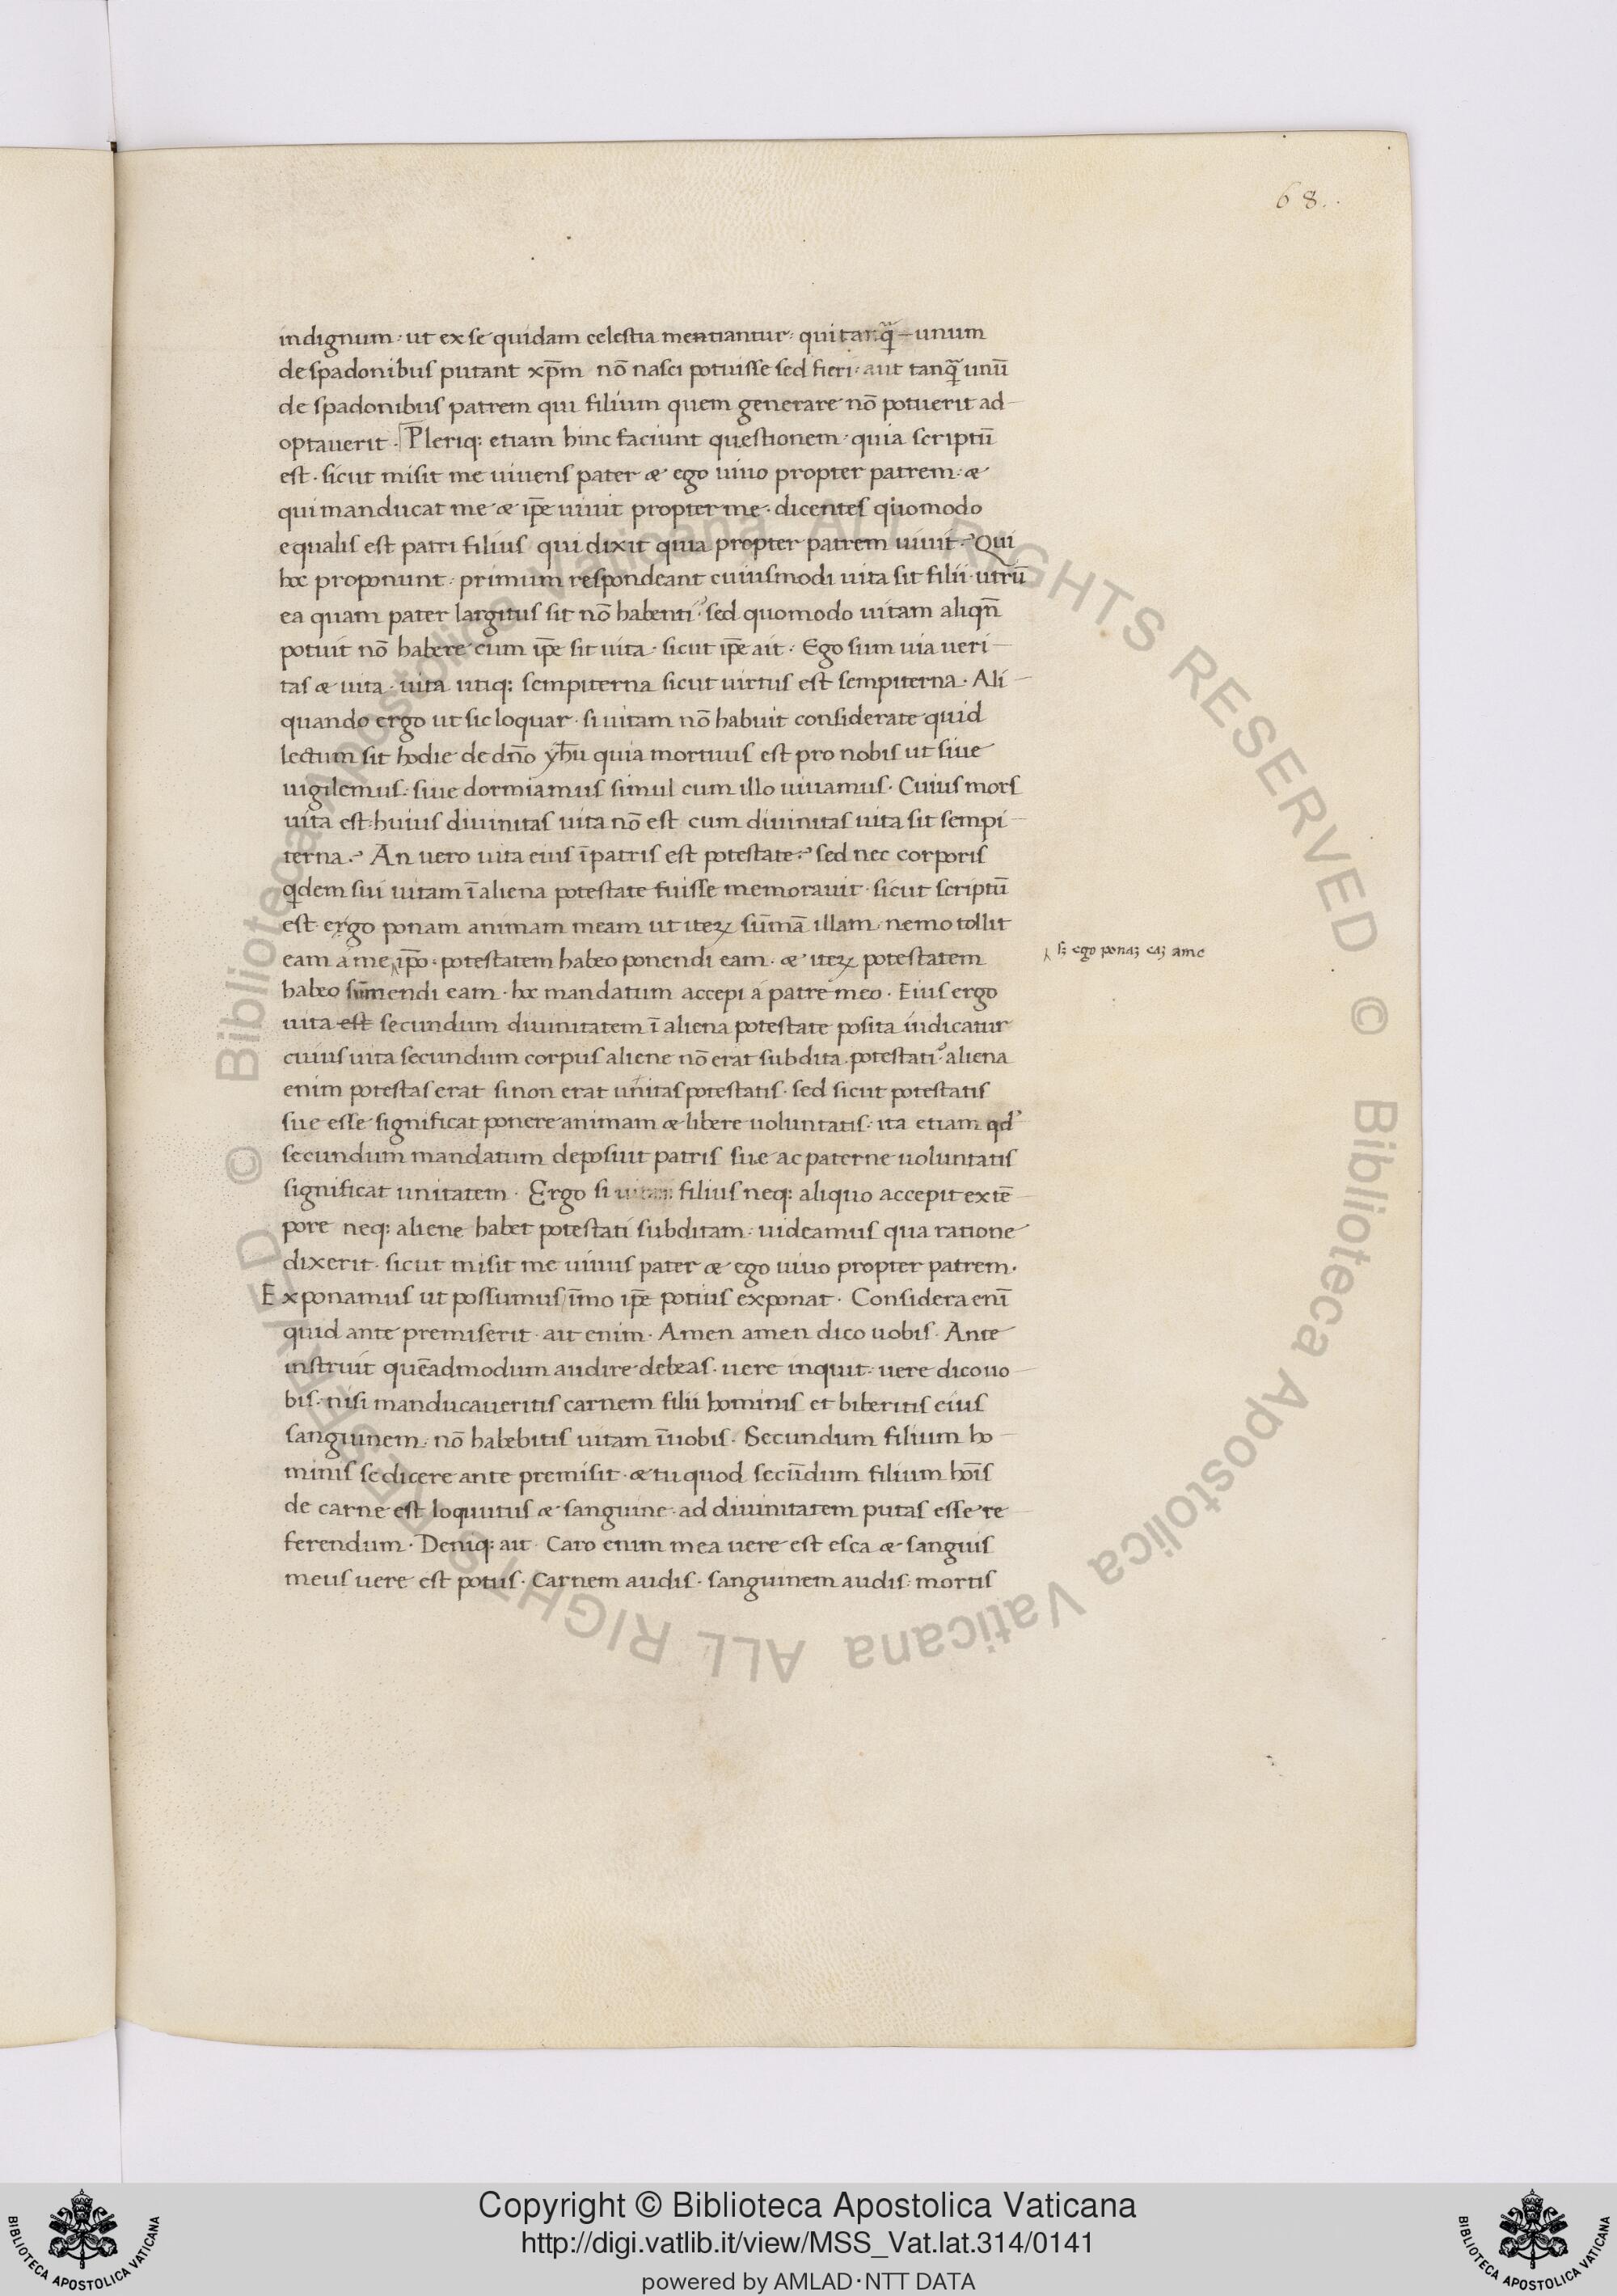 68.
indignum · ut ex se quidam celestia mentiantur · qui tanq̃ unum
de spadonibus putant xp̄m nō nasci potuisse sed fieri · aut tanq̃ unū
de spadonibus patrem qui filium quem generare nō potuerit ad
optauerit · Pleriq: etiam hinc faciunt questionem · quia scriptū
est · sicut misit me uiuens pater æ ego uiuo propter patrem · æ
qui manducat me æ ip̄e uiuit propter me · dicentes quomodo
equalis est patri filius qui dixit quia propter patrem uiuit ·? Qui
hoc proponunt · primum respondeant cuiusmodi uita sit filii · utrū
ea quam pater largitus sit nō habenti? sed quomodo uitam aliqn̄
potuit nō habere cum ip̄e sit uita · sicut ip̄e ait · Ego sum uia ueri
tas æ uita · uita utiq: sempiterna sicut uirtus est sempiterna · Ali
quando ergo ut sic loquar · si uitam nō habuit considerate quid
lectum sit hodie de dn̄o yh̄u quia mortuus est pro nobis ut siue
uigilemus · siue dormiamus simul cum illo uiuamus · Cuius mors
uita est · huius diuinitas uita nō est cum diuinitas uita sit sempi
terna ·? An uero uita eius ī patris est potestate ·? sed nec corporis
qdem sui uitam ī aliena potestate fuisse memorauit · sicut scriptū
est · ergo ponam animam meam ut iteꝝ sūmā illam · nemo tollit
eam a me ip̄o · potestatem habeo ponendi eam · æ iteꝝ potestatem
sꝫ ego ponaꝫ eaꝫ a me
habeo sūmendi eam · hoc mandatum accepi a patre meo · Eius ergo
uita est secundum diuinitatem ī aliena potestate posita indicatur
cuius uita secundum corpus aliene nō erat subdita potestati? aliena
enim potestas erat si non erat unitas potestatis · sed sicut potestatis
sue esse significat ponere animam æ libere uoluntatis · ita etiam qd
secundum mandatum deposuit patris sue ac paterne uoluntatis
significat unitatem · Ergo si uitam filius neq: aliquo accepit ex tē
pore neq: aliene habet potestati subditam · uideamus qua ratione
dixerit · sicut misit me uiuus pater æ ego uiuo propter patrem ·
Exponamus ut possumus īmo ip̄e potius exponat · Considera enī
quid ante premiserit · ait enim · Amen amen dico uobis · Ante
instruit quēadmodum audire debeas · uere inquit · uere dico uo
bis · nisi manducaueritis carnem filii hominis et biberitis eius
sanguinem · nō habebitis uitam ī uobis · Secundum filium ho
minis se dicere ante premisit · æ tu quod secūdum filium hoīs
de carne est loquutus æ sanguine · ad diuinitatem putas esse re
ferendum · Deniq: ait Caro enim mea uere est esca æ sanguis
meus uere est potus · Carnem audis · sanguinem audis · mortis
© Biblioteca Apostolica Vaticana ALL RIGHTS RESERVED © Biblioteca Apostolica Vaticana ALL RIGHTS RESERVED
BIBLIOTECA APOSTOLICA VATICANA
Copyright © Biblioteca Apostolica Vaticana
http://digi.vatlib.it/view/MSS_Vat.lat.314/0141
powered by AMLAD·NTT DATA
BIBLIOTECA APOSTOLICA VATICANA